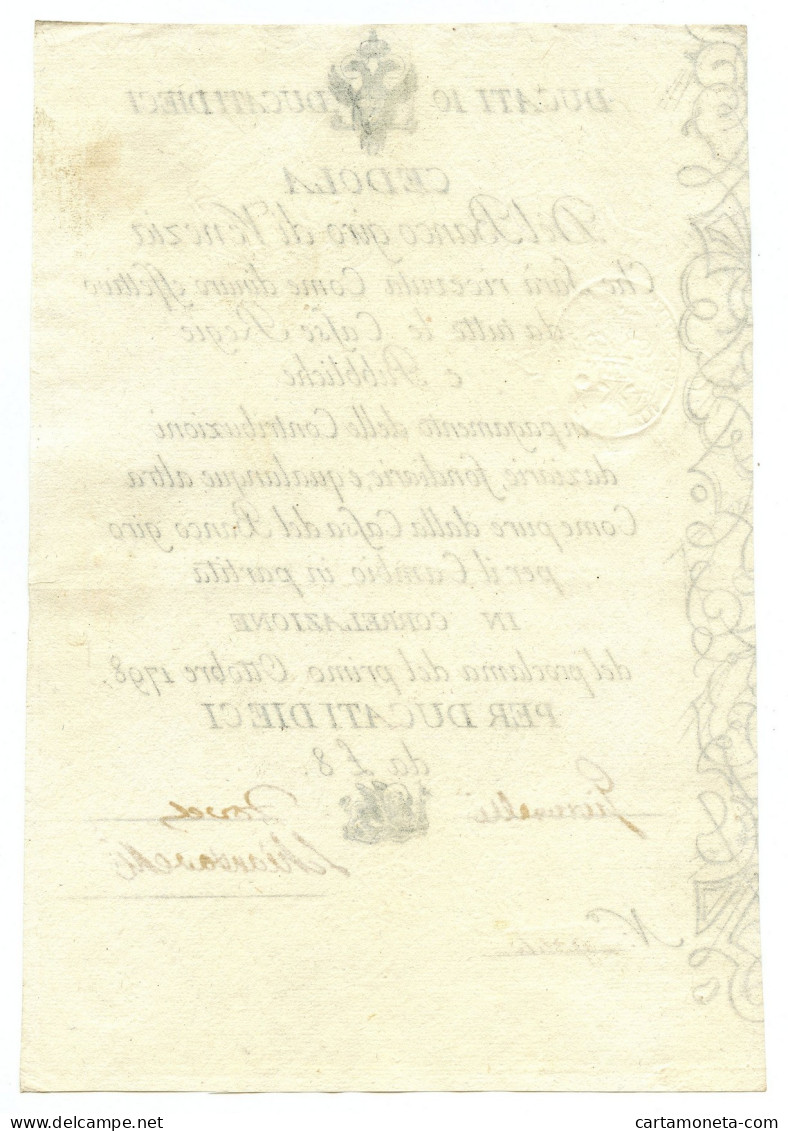 DUCATI 10 DUCATI DIECI
CEDOLA
Del Banco giro di Venezia
Che sarà ricevuta Come dinaro effettivo
da tutte le Casse Regie
e Pubbliche
in pagamento delle Contribuzioni
daziarie, fondiarie, e qualunque altra
Come pure dalla Cassa del Banco giro
per il Cambio in partita
IN CORRELAZIONE
del proclama del primo Ottobre 1798.
PER DUCATI DIECI
da £ 8.
N.º
delcampe.net
cartamoneta-com